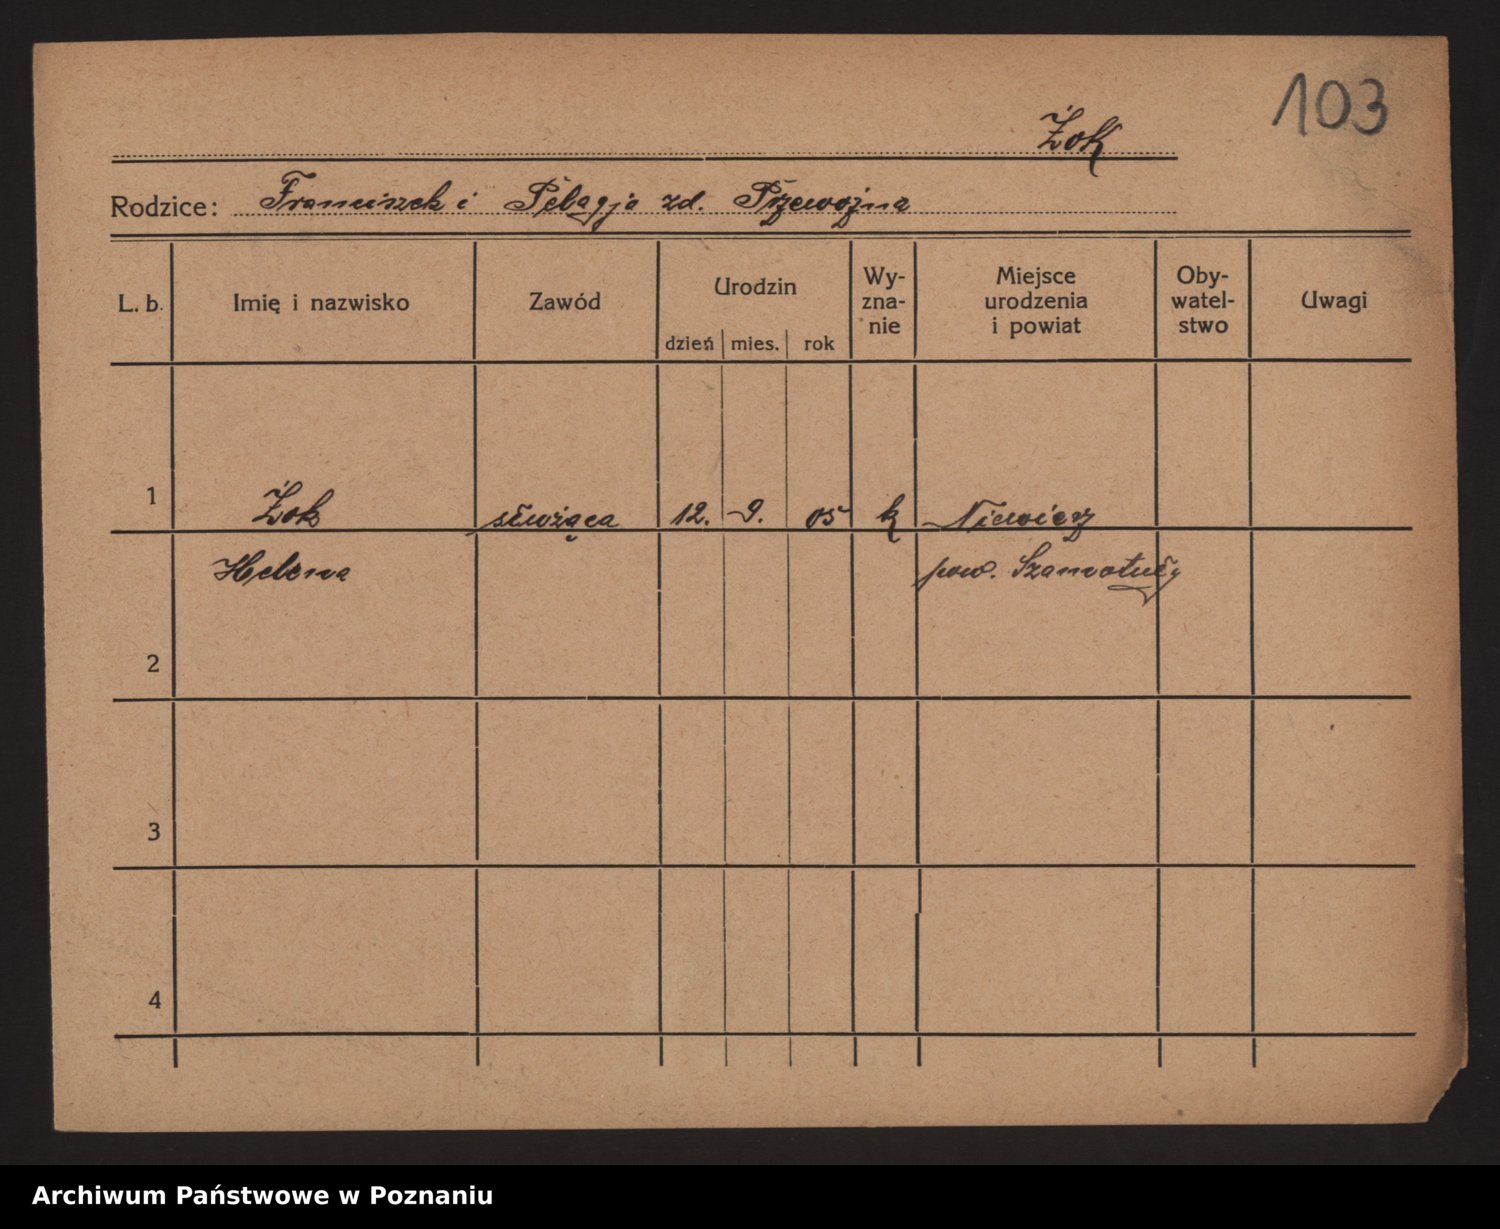 103
Żok
Rodzice: Franciszek i Pelagja zd. Przewoźna
L. b. Imię i nazwisko Zawód Urodzin Wy-zna-nie Miejsce urodzenia i powiat Oby-watel-stwo Uwagi
dzień mies. rok
1 Żok służąca 12. 9. 05 k Niewierz
Helena pow. Szamotuły
2
3
4
Archiwum Państwowe w Poznaniu